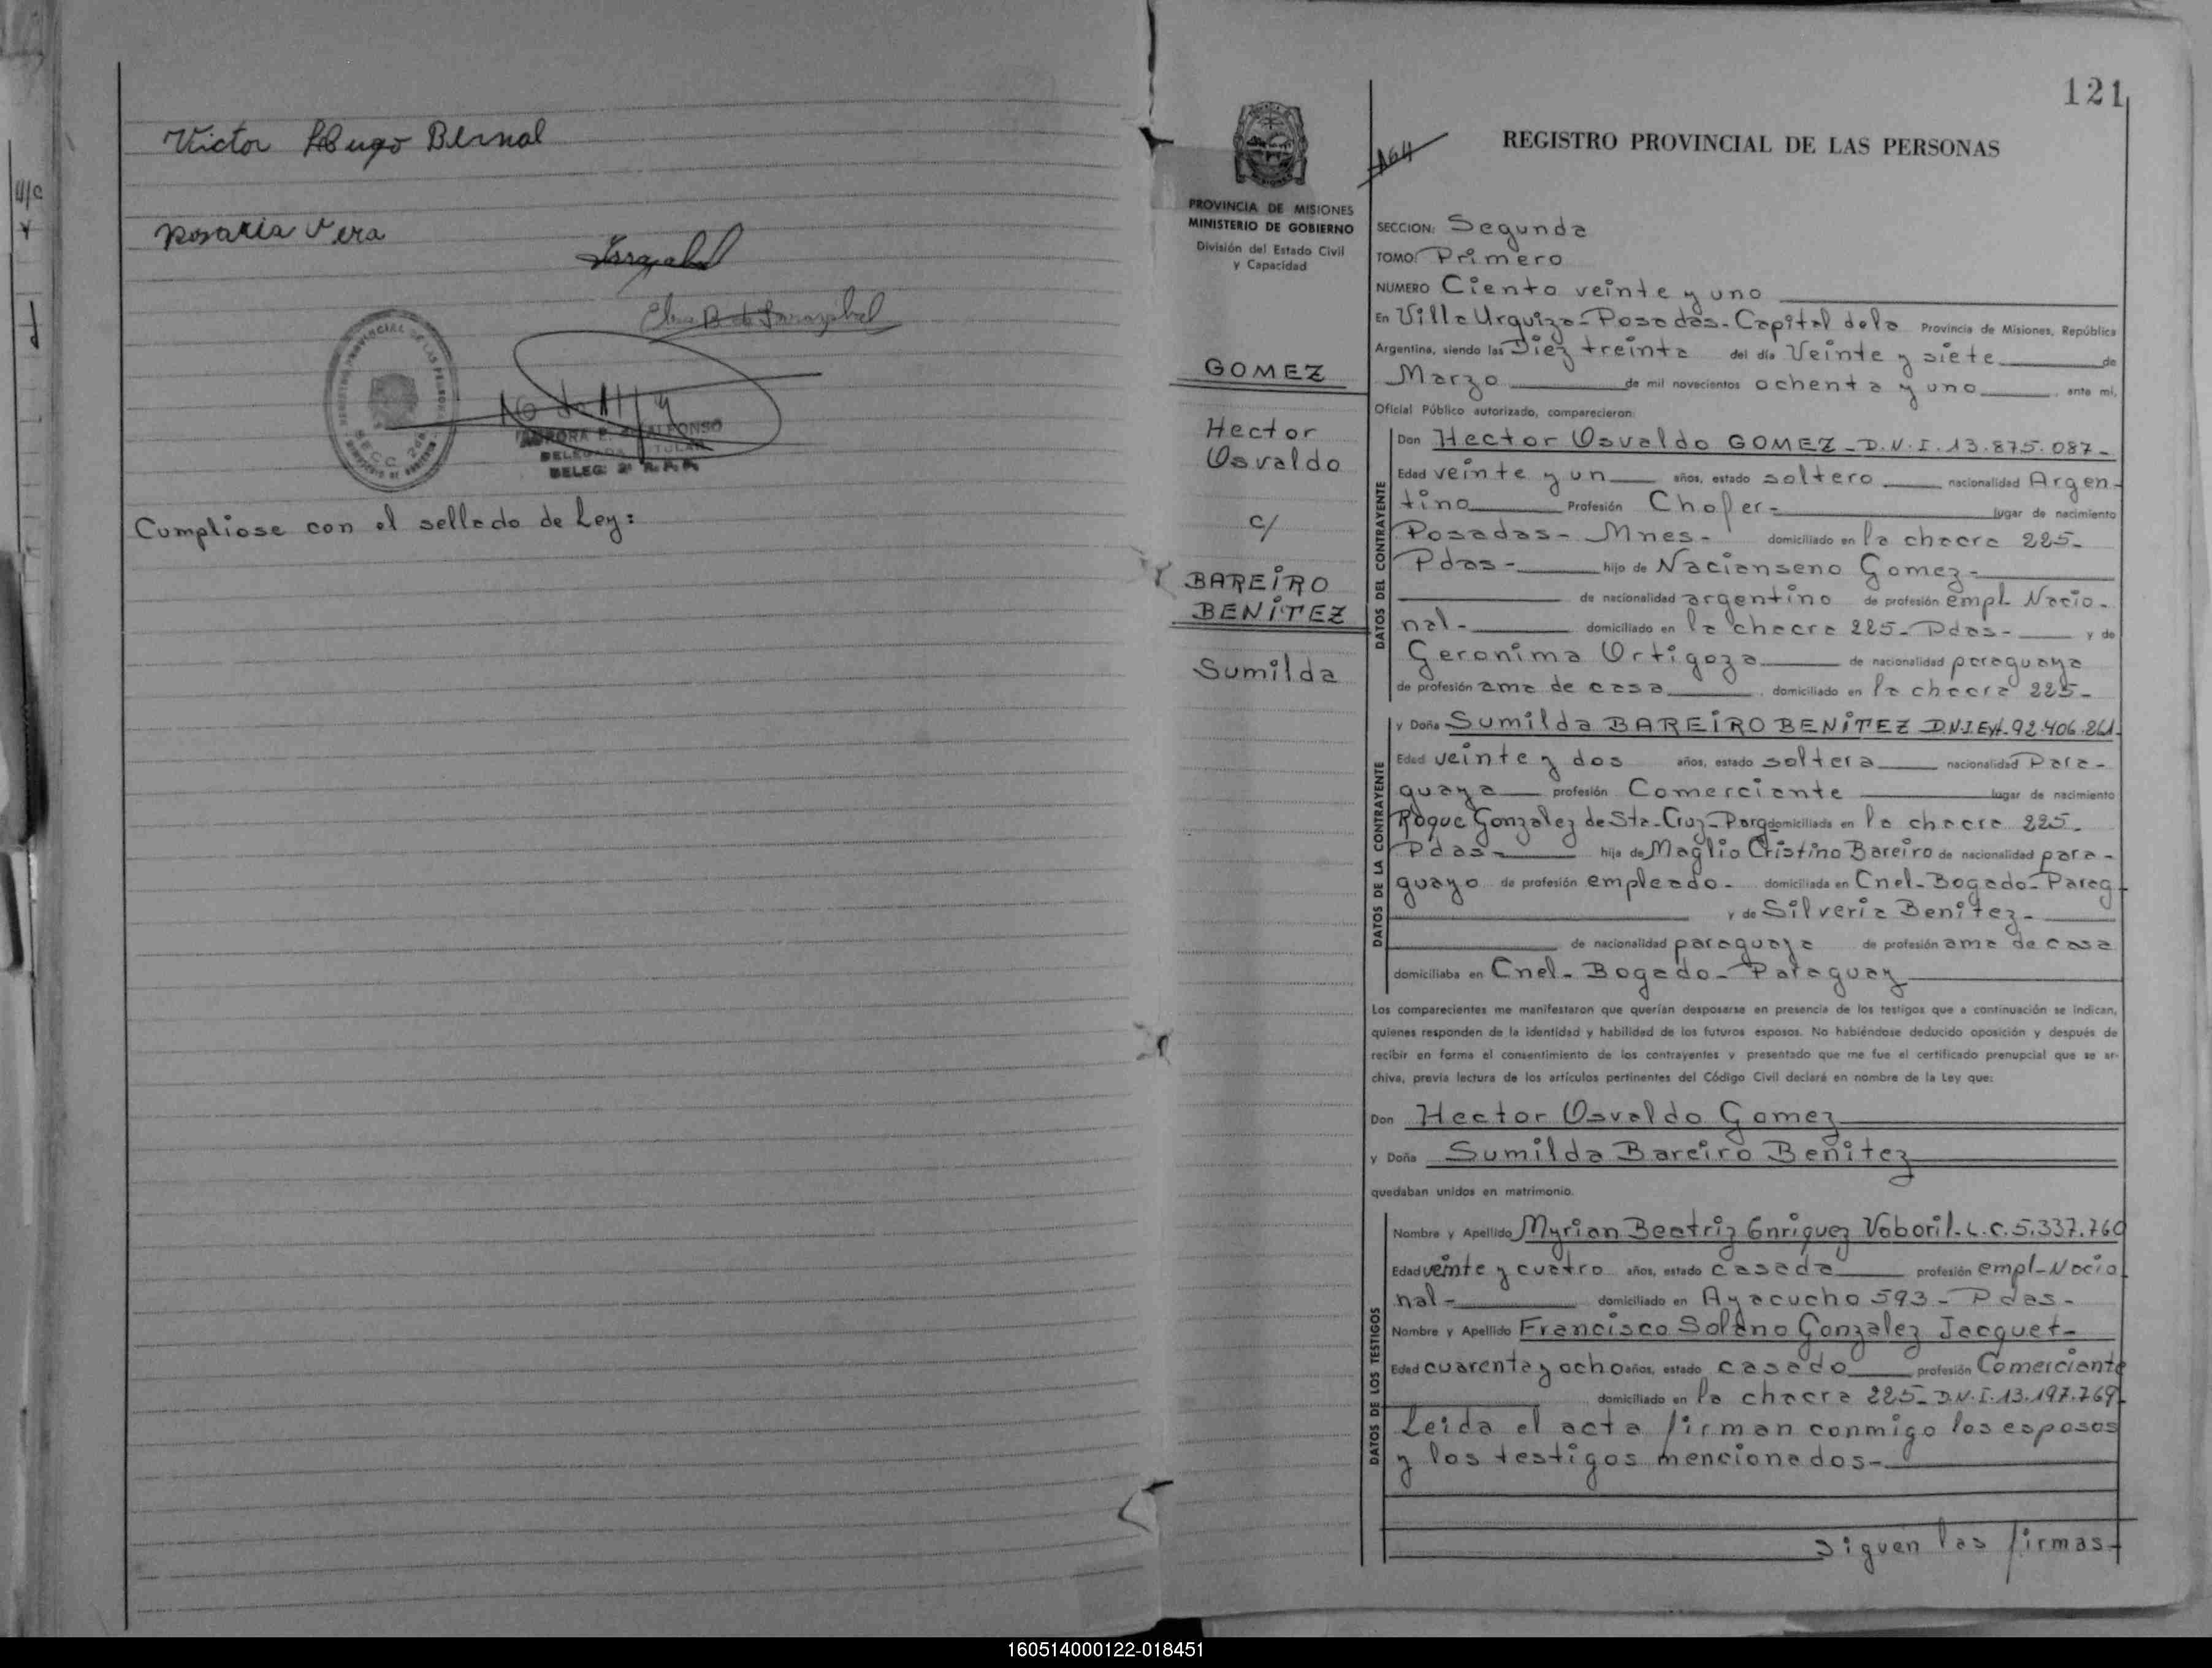 Victor Hugo Bernal
Rosaria Vera
Elsa B. de Larrazabal
SECC. 2da
AURORA E. de ALFONSO
DELEGADA TITULAR
DELEG. 2ª R. P. P.
Cumpliose con el sellado de Ley:
121
REGISTRO PROVINCIAL DE LAS PERSONAS
PROVINCIA DE MISIONES
MINISTERIO DE GOBIERNO
División del Estado Civil
y Capacidad
GOMEZ
Hector
Osvaldo
c/
BAREIRO
BENITEZ
Sumilda
SECCION: Segunda
TOMO: Primero
NUMERO Ciento veinte y uno
En Villa Urquiza-Posadas-Capital de la Provincia de Misiones, República
Argentina, siendo las Diez treinta del día Veinte y siete de
Marzo de mil novecientos ochenta y uno, ante mí,
Oficial Público autorizado, comparecieron:
DATOS DEL CONTRAYENTE
Don Hector Osvaldo GOMEZ - D.N.I. 13.875.087-
Edad veinte y un años, estado soltero nacionalidad Argen-
tino Profesión Chofer- lugar de nacimiento
Posadas- Mnes- domiciliado en la chacra 225-
Pdas- hijo de Nacianseno Gomez-
de nacionalidad argentino de profesión empl. Nacio-
nal- domiciliado en la chacra 225- Pdas- y de
Geronima Ortigoza de nacionalidad paraguaya
de profesión ama de casa, domiciliado en la chacra 225-
DATOS DE LA CONTRAYENTE
y Doña Sumilda BAREIRO BENITEZ D.N.I. Ext. 92.406.261-
Edad veinte y dos años, estado soltera nacionalidad Para-
guaya profesión Comerciante lugar de nacimiento
Roque Gonzalez de Sta-Cruz-Parg domiciliada en la chacra 225-
Pdas- hija de Maglio Cristino Bareiro de nacionalidad para-
guayo de profesión empleado- domiciliada en Cnel-Bogado-Parag-
y de Silveria Benitez-
de nacionalidad paraguaya de profesión ama de casa
domiciliaba en Cnel- Bogado- Paraguay
Los comparecientes me manifestaron que querían desposarse en presencia de los testigos que a continuación se indican,
quienes responden de la identidad y habilidad de los futuros esposos. No habiéndose deducido oposición y después de
recibir en forma el consentimiento de los contrayentes y presentado que me fue el certificado prenupcial que se ar-
chiva, previa lectura de los artículos pertinentes del Código Civil declaré en nombre de la Ley que:
Don Hector Osvaldo Gomez
y Doña Sumilda Bareiro Benitez
quedaban unidos en matrimonio.
DATOS DE LOS TESTIGOS
Nombre y Apellido Myrian Beatriz Enriquez Voboril-L.C. 5.337.760
Edad veinte y cuatro años, estado casada profesión empl-Nacio
nal- domiciliado en Ayacucho 593- Pdas-
Nombre y Apellido Francisco Solano Gonzalez Jacquet-
Edad cuarenta y ocho años, estado casado profesión Comerciante
domiciliado en la chacra 225- D.N.I. 13.197.769-
Leida el acta firman conmigo los esposos
y los testigos mencionados-
Siguen las firmas-
160514000122-018451